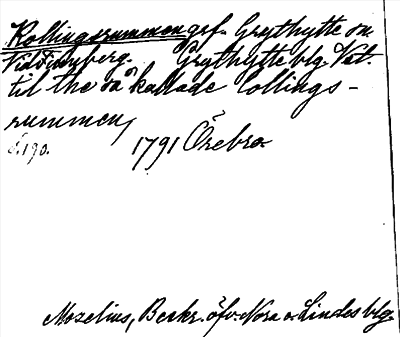 Kollingsrummen gsf. Grythytte sn
Grythytte blg. Vat.
til the så kallade Collings-
rummen,
s. 190. 1791 Örebro
Mozelius, Beskr. öfv. Nora o. Lindes blg.